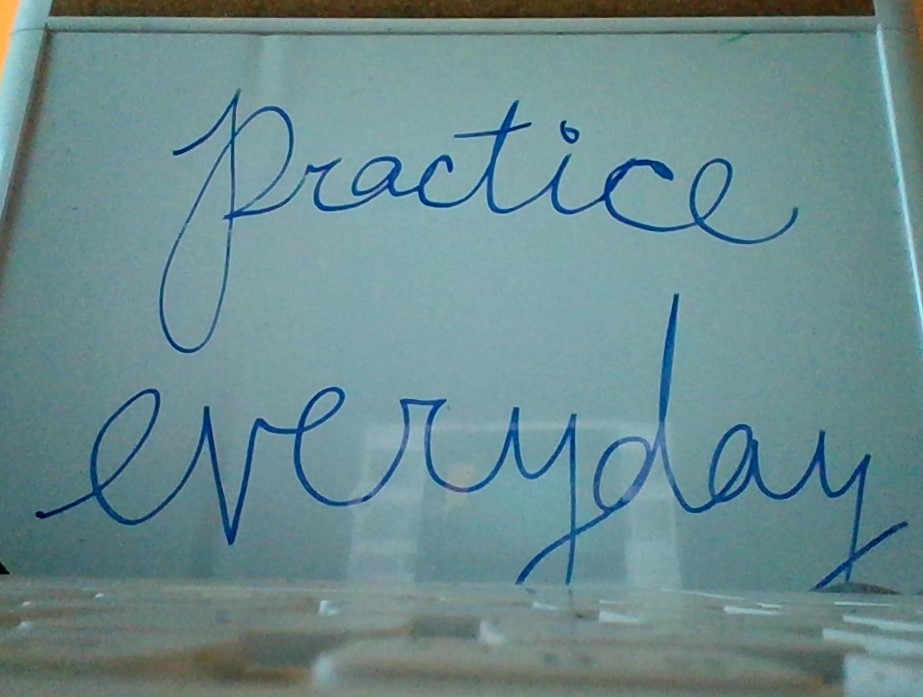 practice
everyday